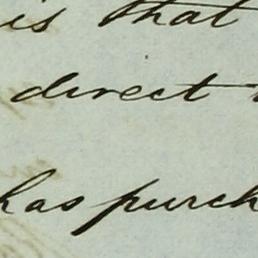 is that
direct
has purch